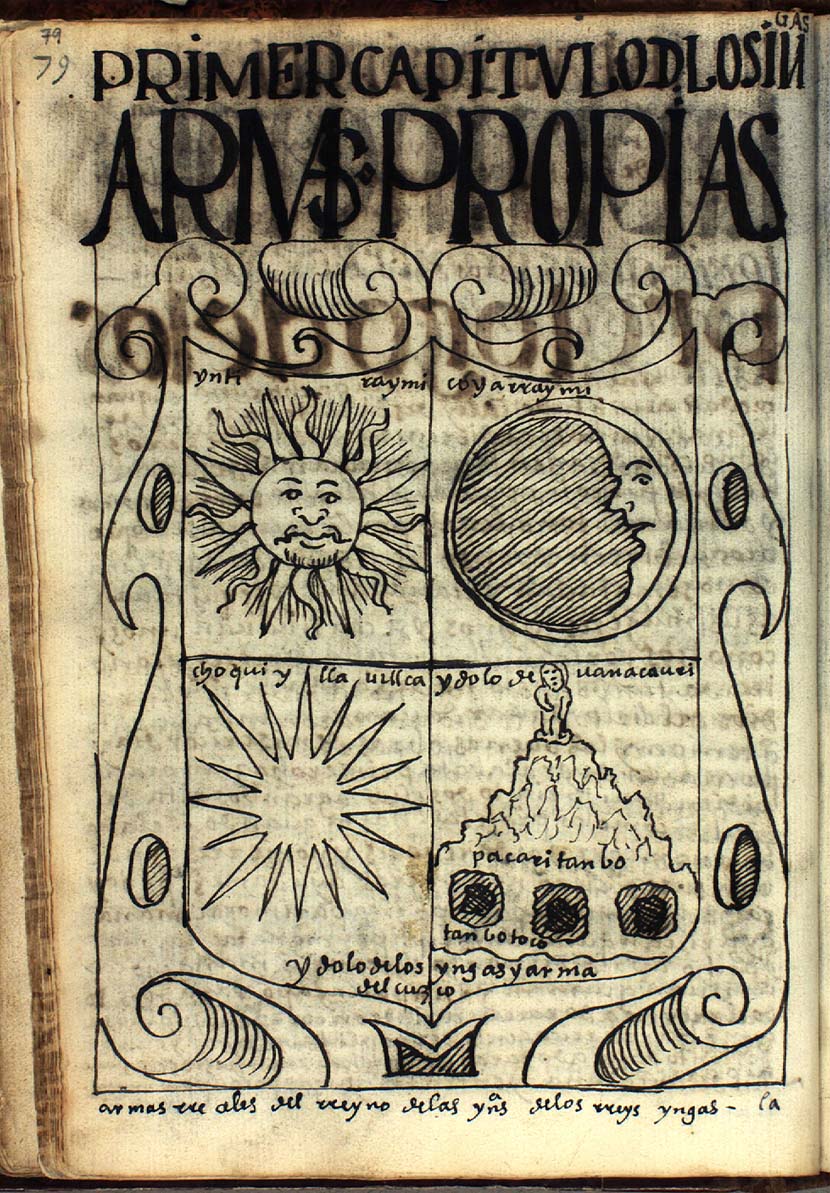 79
79
PRIMER CAPITVLO D LOS INGAS
ARMAS: PROPIAS
ynti raymi
coya rraymi
choqui ylla uillca
ydolo de uanacauri
pacaritanbo
tanbotoco
ydolo de los yngas y arma
del cuzco
armas rreales del rreyno de las yns de los rreys yngas - la